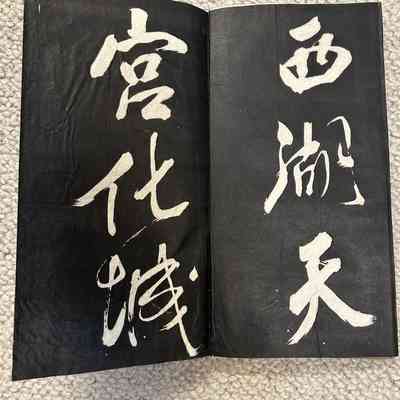 西湖天
宮化城